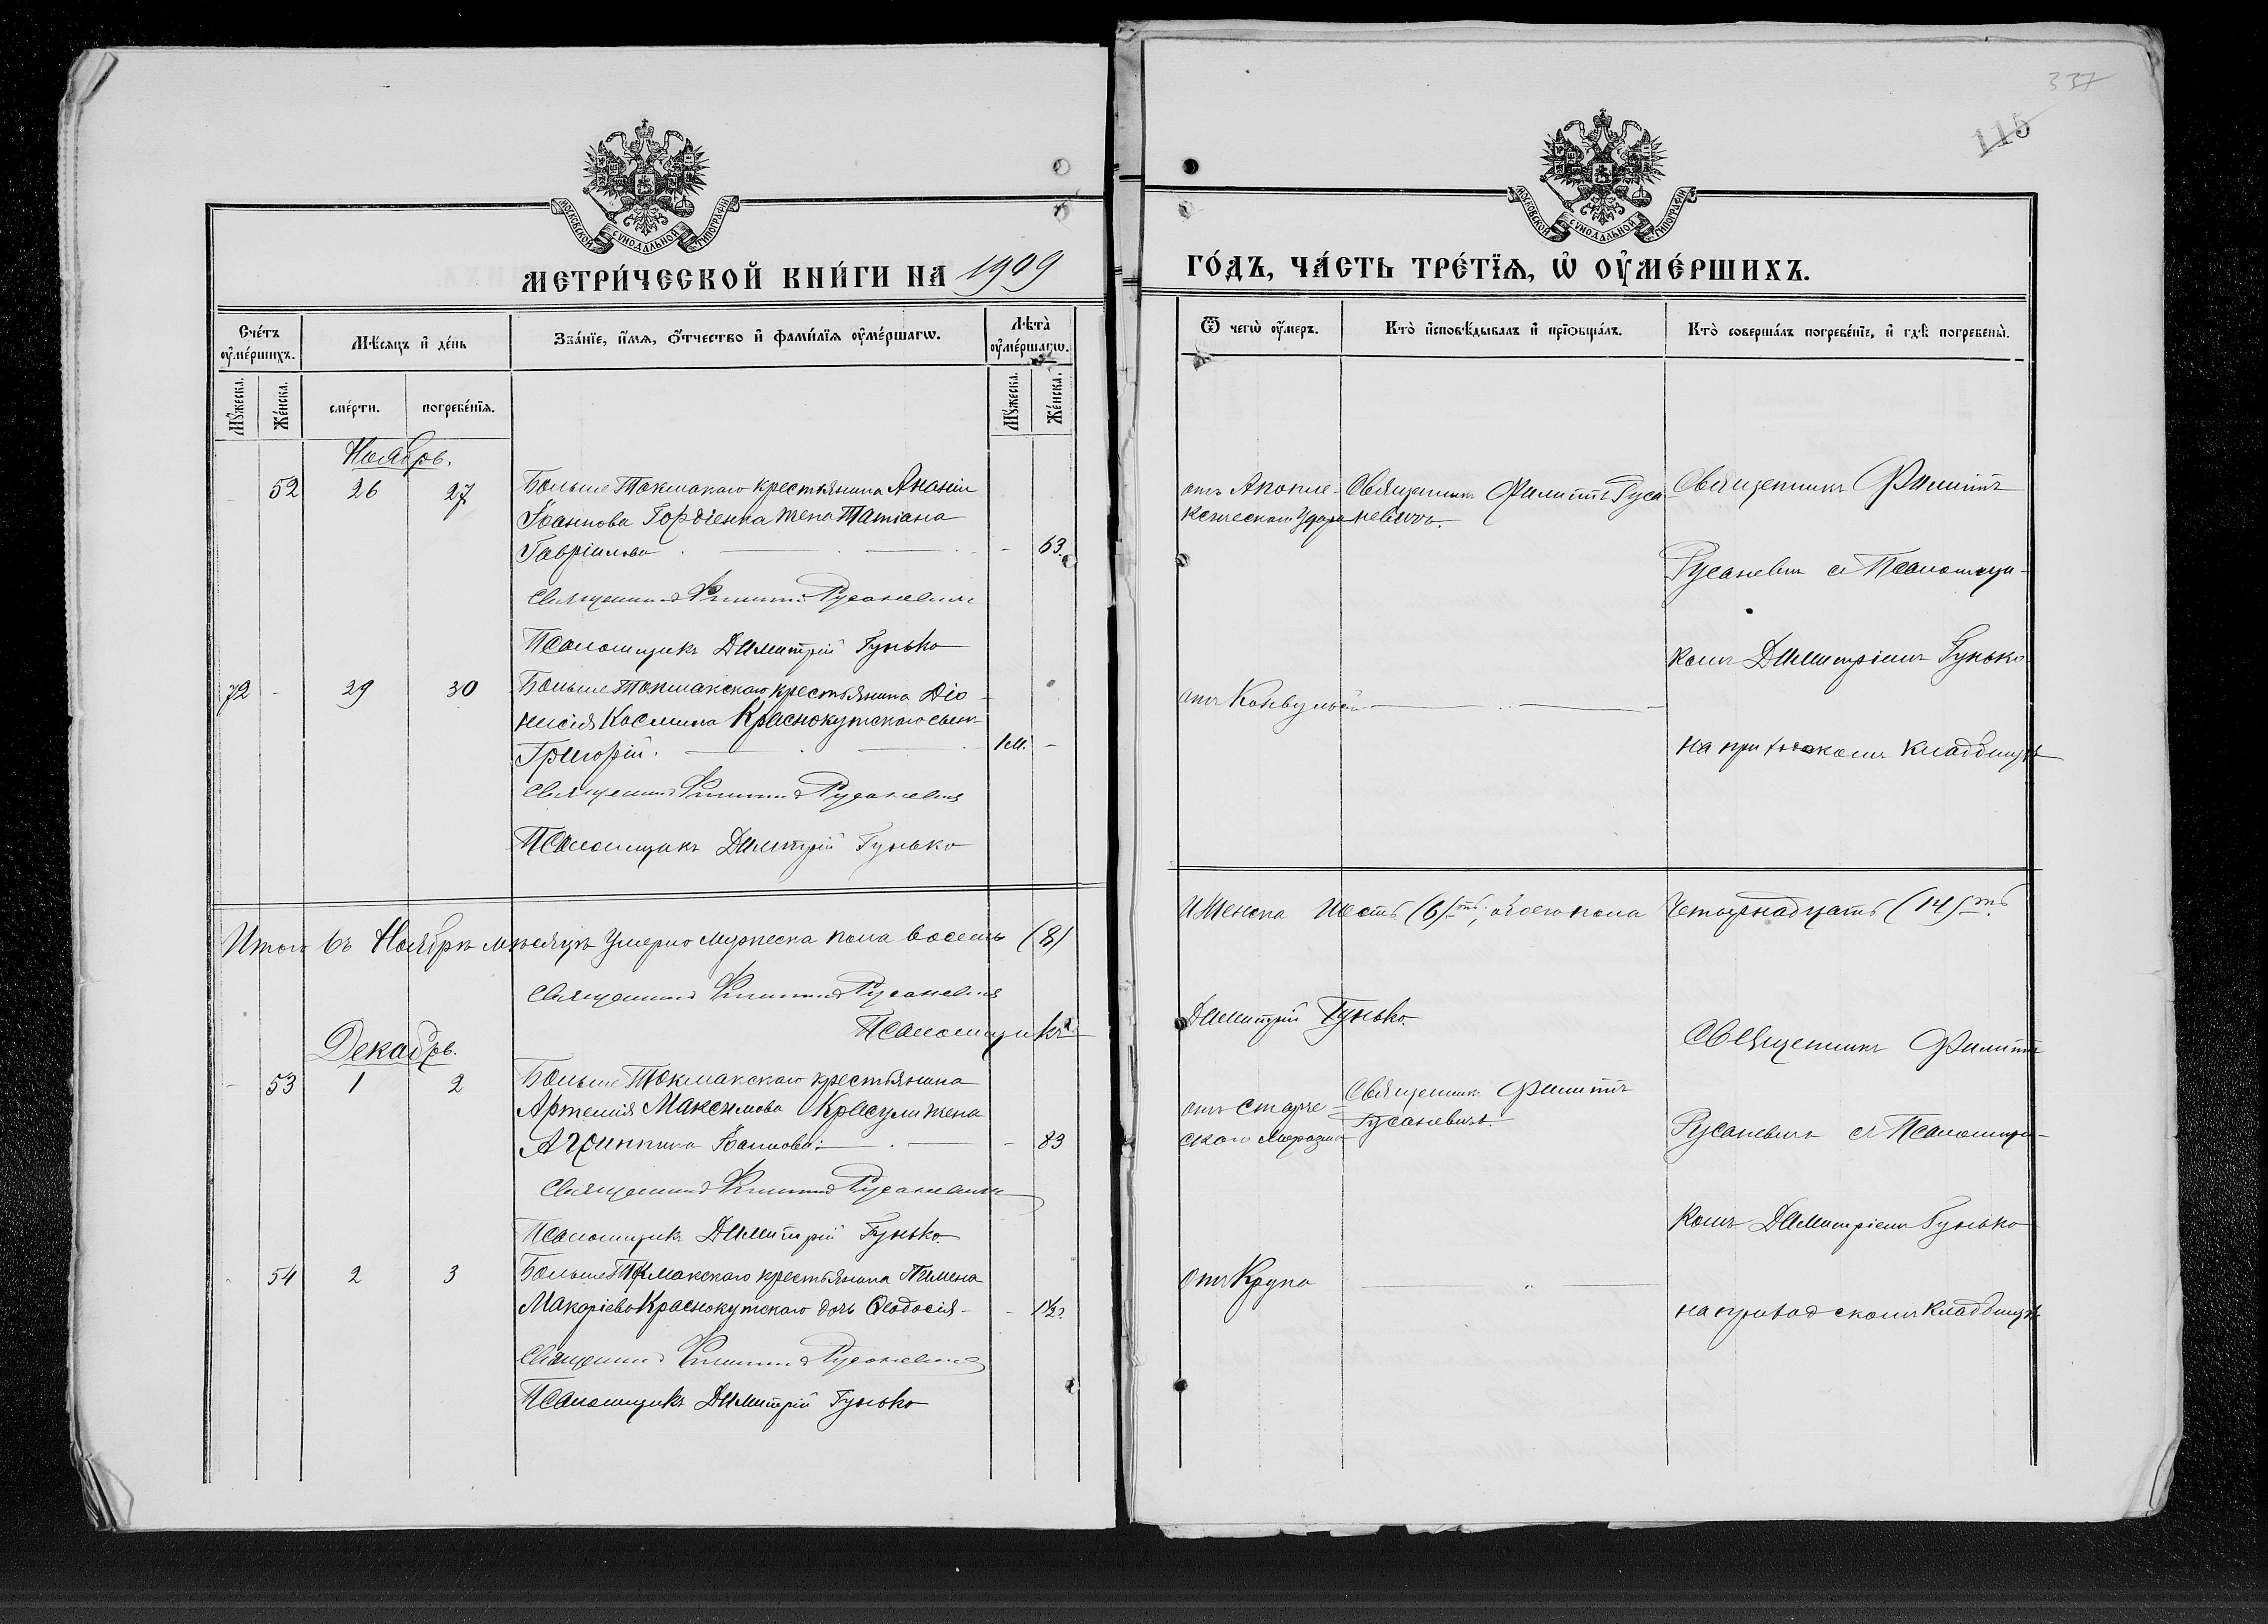 337
115
МОСКОВСКОЙ СѴНОДАЛЬНОЙ ТИПОГРАФІИ
МЕТРИ́ЧЕСКОЙ КНИ́ГИ НА 1909
Сче́тъ ᲂу҆ме́ршихъ.
Мѣ́сяцъ и҆ де́нь
Зва́нїе, и҆́мѧ, ѻ҆́тчество и҆ фами́лїѧ ᲂу҆ме́ршагѡ.
Лѣта̀ ᲂу҆ме́ршагѡ.
Мꙋ́жеска.
Же́нска.
сме́рти.
погребе́нїѧ.
Мꙋ́жеска.
Же́нска.
Ноябрь.
52 26 27 Больше Токмакаго крестьянина Ананіи
Іоаннова Гордіенка жена Татіана
Гавріилова - 63.
Священникъ Филиппъ Русаневичъ
Псаломщикъ Димитрій Гунько
72 - 29 30 Больше Токмакскаго крестьянина Діо-
нисія Космина Краснокутскаго сынъ
Григорій. 1 м. -
Священникъ Филиппъ Русаневичъ
Псаломщикъ Димитрій Гунько
Итого въ Ноябрѣ мѣсяцѣ умерло мужеска пола восемь (8)
Священникъ Филиппъ Русаневичъ
Псаломщикъ
Декабрь.
- 53 1 2 Больше Токмакскаго крестьянина
Артемія Максимова Красули жена
Агриппина Іоаннова - 83
Священникъ Филиппъ Русаневичъ
Псаломщикъ Димитрій Гунько
54 2 3 Больше Токмакскаго крестьянина Пимена
Макаріева Краснокутскаго дочь Ѳеодосія - 1½
Священникъ Филиппъ Русаневичъ
Псаломщикъ Димитрій Гунько
МОСКОВСКОЙ СѴНОДАЛЬНОЙ ТИПОГРАФІИ
ГО́ДЪ, ЧА́СТЬ ТРЕ́ТЇѦ, Ѡ҆ ОУ҆МЕ́РШИХЪ.
Ѿ чегѡ̀ ᲂу҆́меръ.
Кто̀ и҆сповѣ́дывалъ и҆ прїѡбща́лъ.
Кто̀ соверша́лъ погребе́нїе, и҆ гдѣ̀ погребены̀.
отъ Апопле-
ксическаго удара
Священникъ Филиппъ Руса-
невичъ.
Священникъ Филиппъ
Русаневичъ съ Псаломщи-
комъ Димитріемъ Гунько
на приходскомъ кладбищѣ
отъ Конвульсій
и Женска шесть (6)ть, обоего пола четырнадцать (14)ть
Димитрій Гунько.
отъ старче-
скаго маразма
Священникъ Филиппъ
Русаневичъ.
Священникъ Филиппъ
Русаневичъ съ Псаломщи-
комъ Димитріемъ Гунько
на приходскомъ кладбищѣ
отъ Крупа